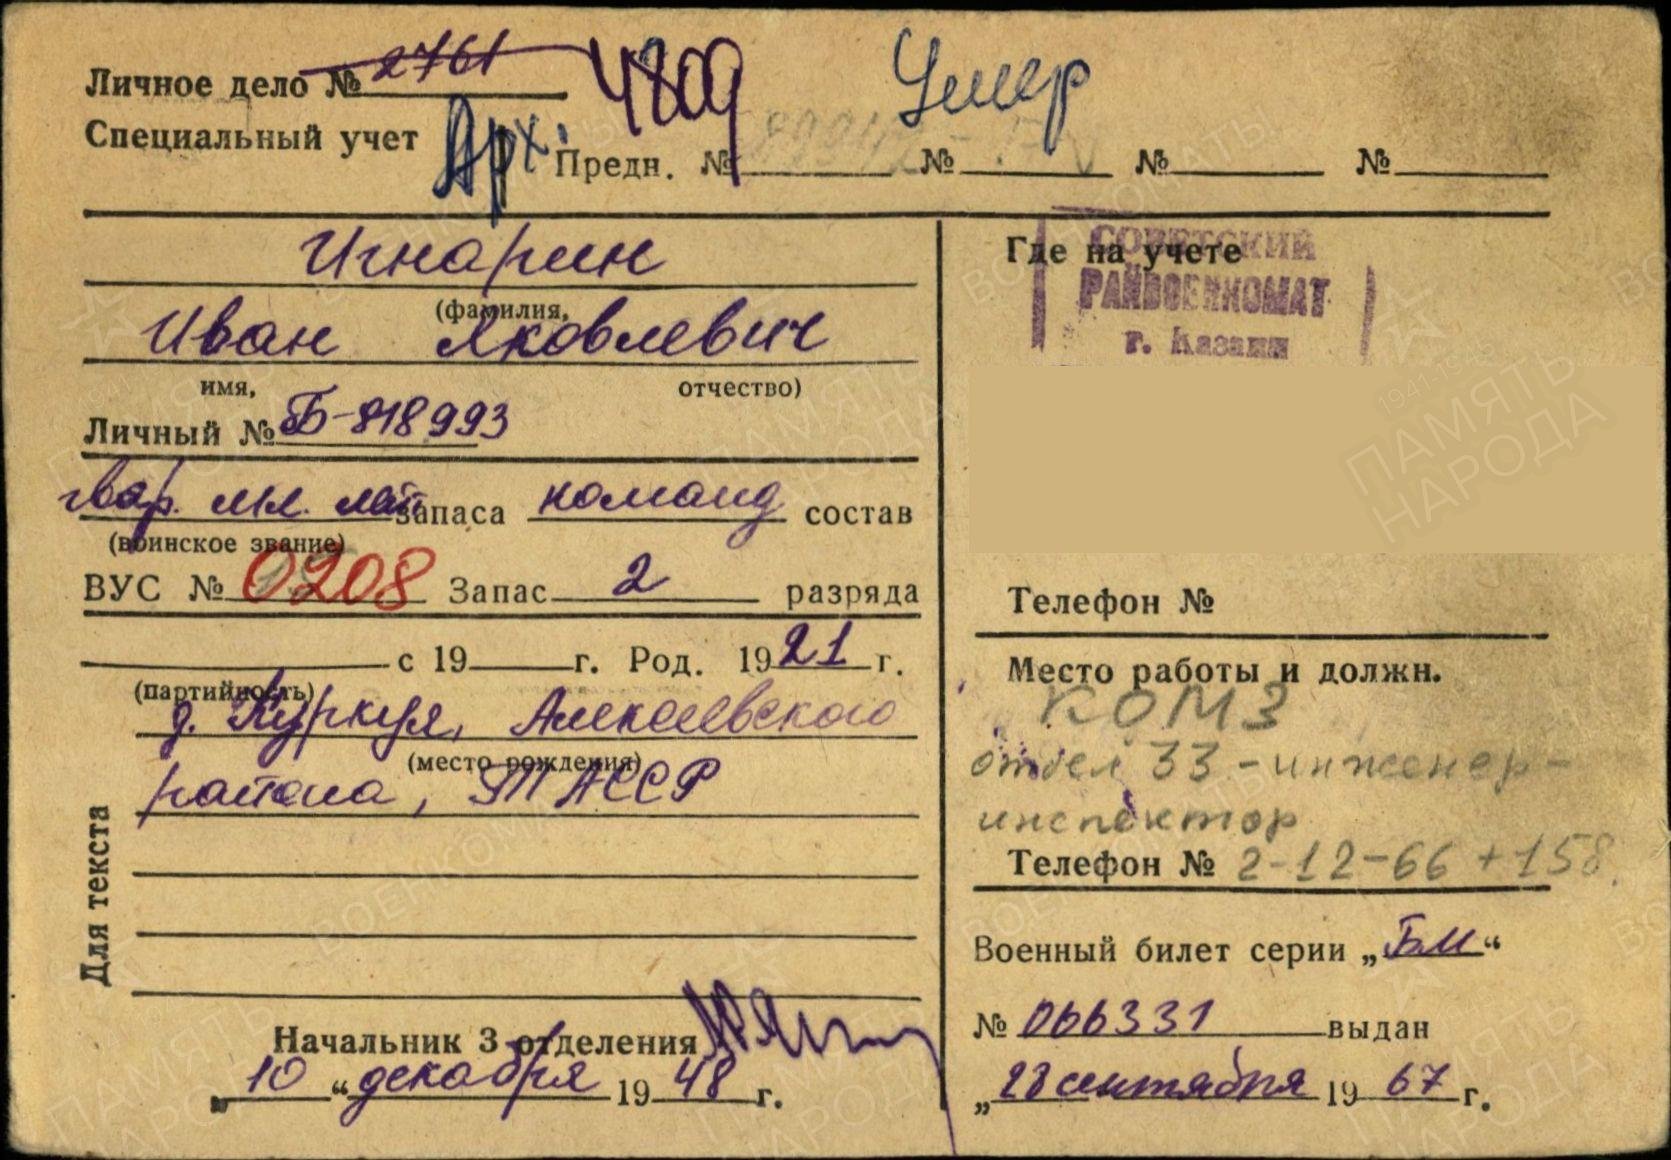 Личное дело № 2761 4809 Умер
Специальный учет Арх. Предн. № № № №
Игнарин
(фамилия,
Иван Яковлевич
имя, отчество)
Личный № Б-818993
гвар. мл. лейт запаса команд состав
(воинское звание)
ВУС № 0208 Запас 2 разряда
с 19 г. Род. 1921 г.
(партийность)
д. Куркуль, Алексеевского
(место рождения)
района, ТАССР
Для текста
Начальник 3 отделения
„10“ декабря 1948 г.
Где на учете
СОВЕТСКИЙ
РАЙВОЕНКОМАТ
г. Казани
Телефон №
Место работы и должн.
КОМЗ
отдел 33 - инженер-
инспектор
Телефон № 2-12-66 + 158
Военный билет серии „БМ“
№ 066331 выдан
„28 сентября 1967 г.
ПАМЯТЬ
НАРОДА
ВОЕНКОМАТЫ